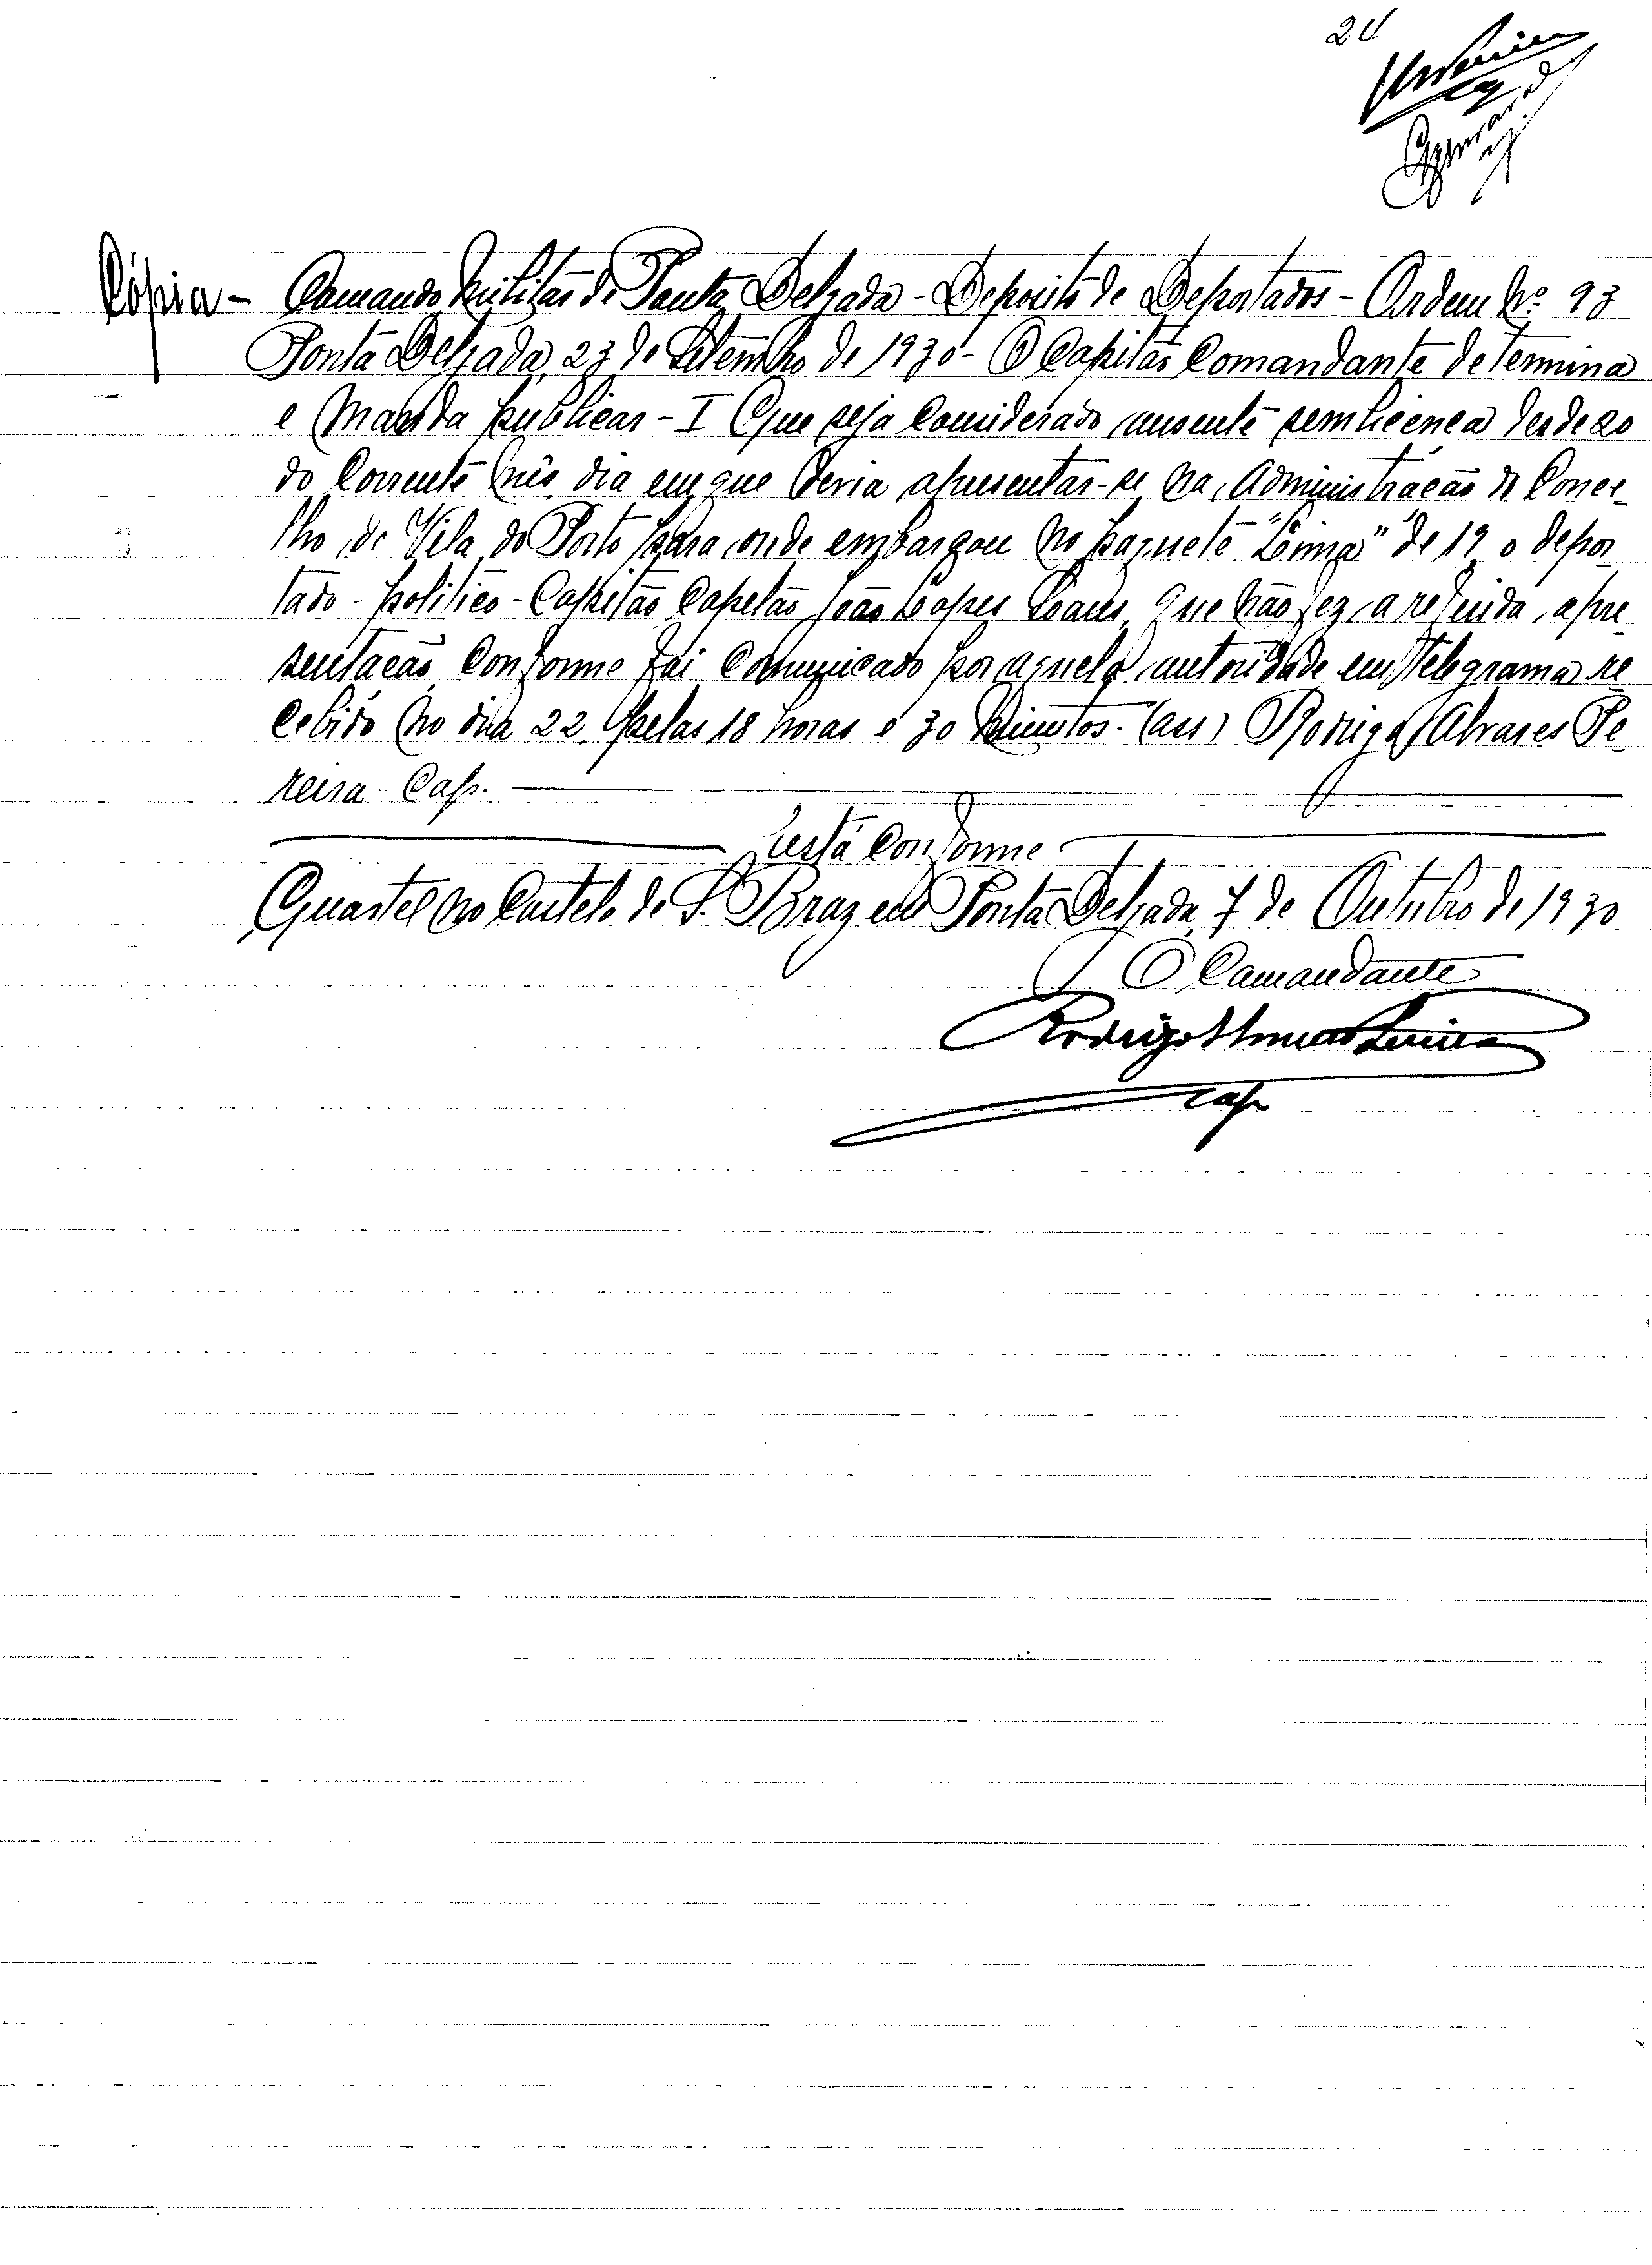 24
Cópia - Comando Militar de Ponta Delgada - Deposito de Deportados - Ordem Nº 93
Ponta Delgada, 23 de Setembro de 1930 - O Capitão Comandante determina
e manda publicar - I Que seja considerado ausente sem licença desde 20
do corrente mês, dia em que devia apresentar-se na Administração do Conce-
lho de Vila do Porto para onde embarcou no paquete "Lima" de 19 o depor
tado - politico - Capitão Capelão João Lopes Soares, que não fez a referida apre
sentação conforme foi comunicado por aquela autoridade em telegrama re
cebido no dia 22 pelas 18 horas e 30 minutos. (ass) Rodrigo Alvares Pe
reira - Cap.
Está Conforme
Quartel no Castelo de S. Braz em Ponta Delgada, 7 de Outubro de 1930
O Comandante
Rodrigo Alvares Pereira
Cap